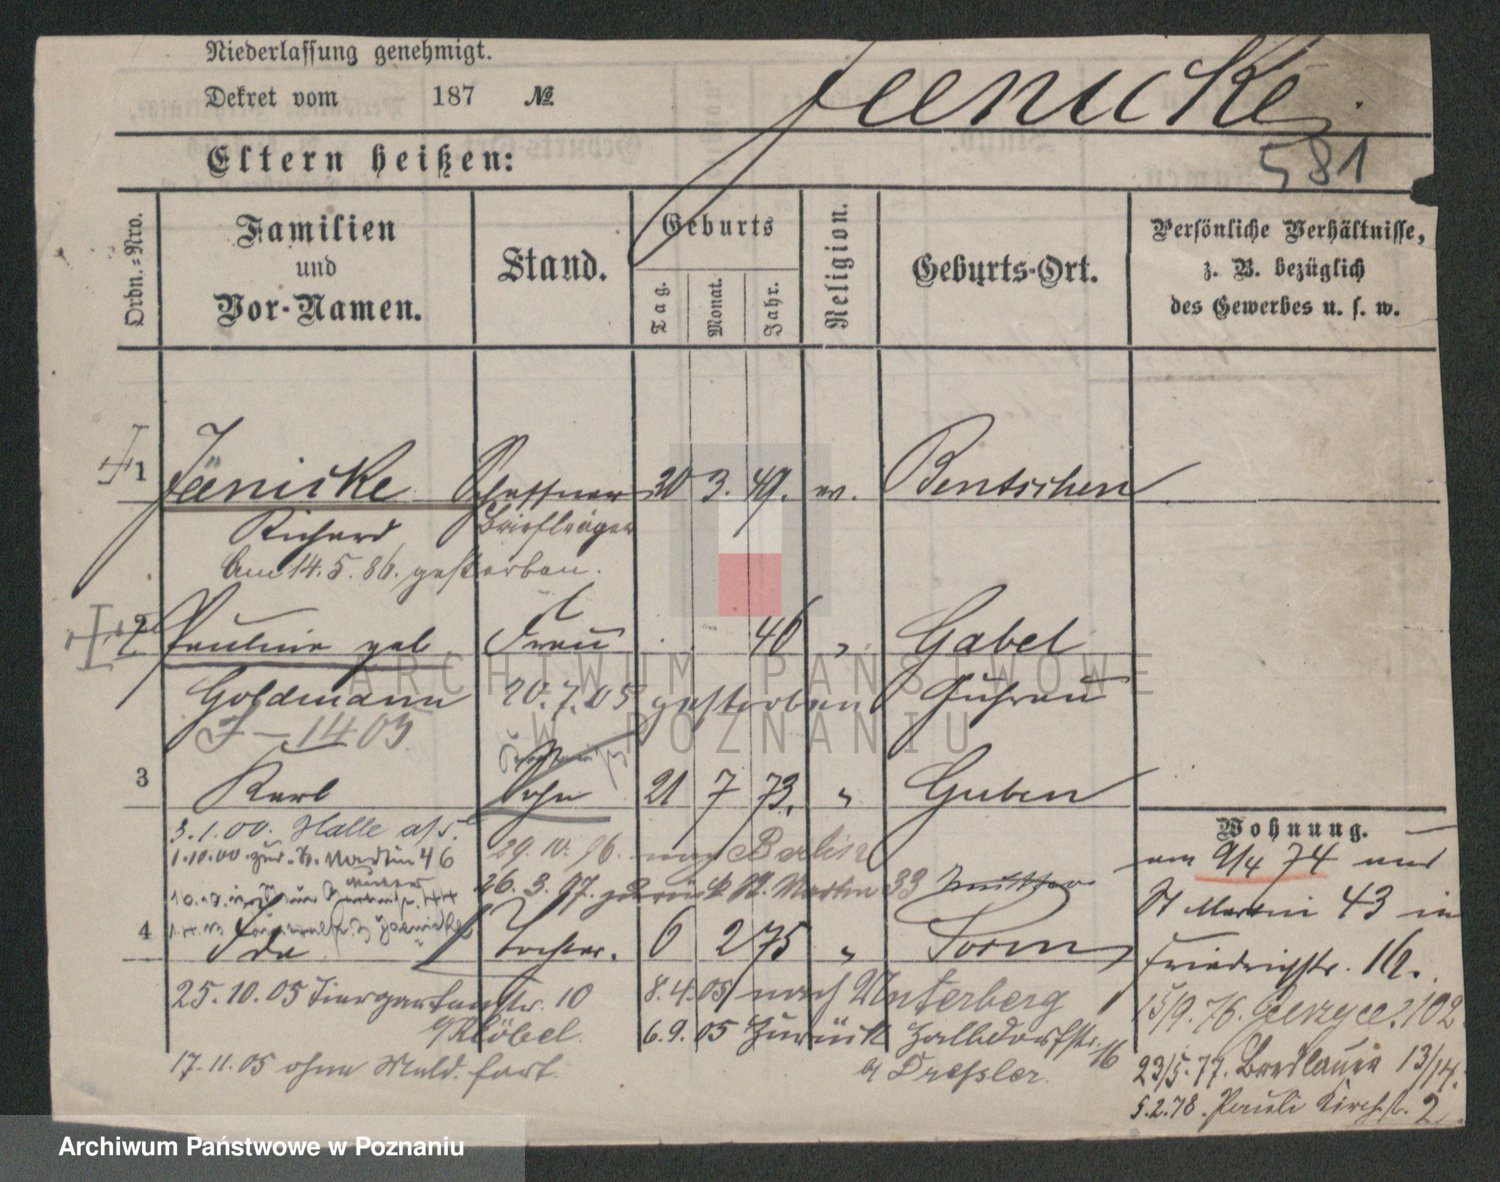 Niederlassung genehmigt.
Dekret vom 187 №
Jaenicke.
581
Eltern heißen:
Ordn.-Nro.
Familien und Vor-Namen.
Stand.
Geburts
Tag. Monat. Jahr.
Religion.
Geburts-Ort.
Persönliche Verhältnisse, z. B. bezüglich des Gewerbes u. s. w.
1 Jaenicke Schaffner 20 3. 49. ev. Bentschen
Richard Briefträger
Am 14.5.86. gestorben.
2 Pauline geb Frau 46 " Gabel
Goldmann 20.7.05 gestorben Guhrau
3 Karl Sohn 21 7 73. " Guben
3.1.00. Halle a/S.
29.10.96. nach Berlin
1.10.00. zur. St. Martin 46
26.3.97. zurück St. Martin 33
4 Ida Tochter. 6 2 75 " Sorau
25.10.05 Tiergartenstr. 10 8.4.05 nach Unterberg
b/ Klöbel. 6.9.05 Zurück Halbdorfstr. 16
17.11.05 ohne Meld. fort. b/ Dressler.
Wohnung.
am 9/4 74 aus
St Martin 43 in
Friedrichstr. 16.
15/9.76. 102
23/5.77. Breslauer 13/14.
5.2.78. Pauli Kirchst. 2
ARCHIWUM PAŃSTWOWE
W POZNANIU
Archiwum Państwowe w Poznaniu